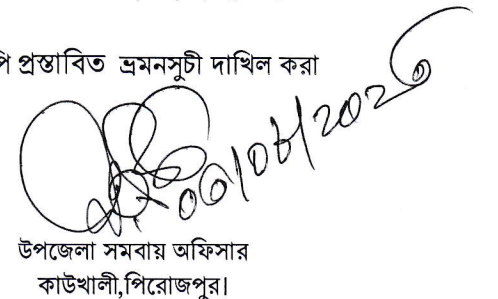 পি প্রস্তাবিত ভ্রমনসুচী দাখিল করা
উপজেলা সমবায় অফিসার
কাউখালী,পিরোজপুর।